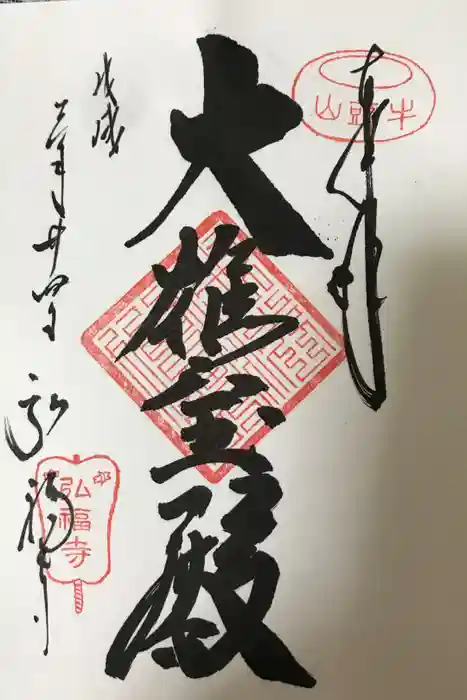 牛頭山
奉拝
大雄宝殿
戊戌
弘福寺
弘福寺